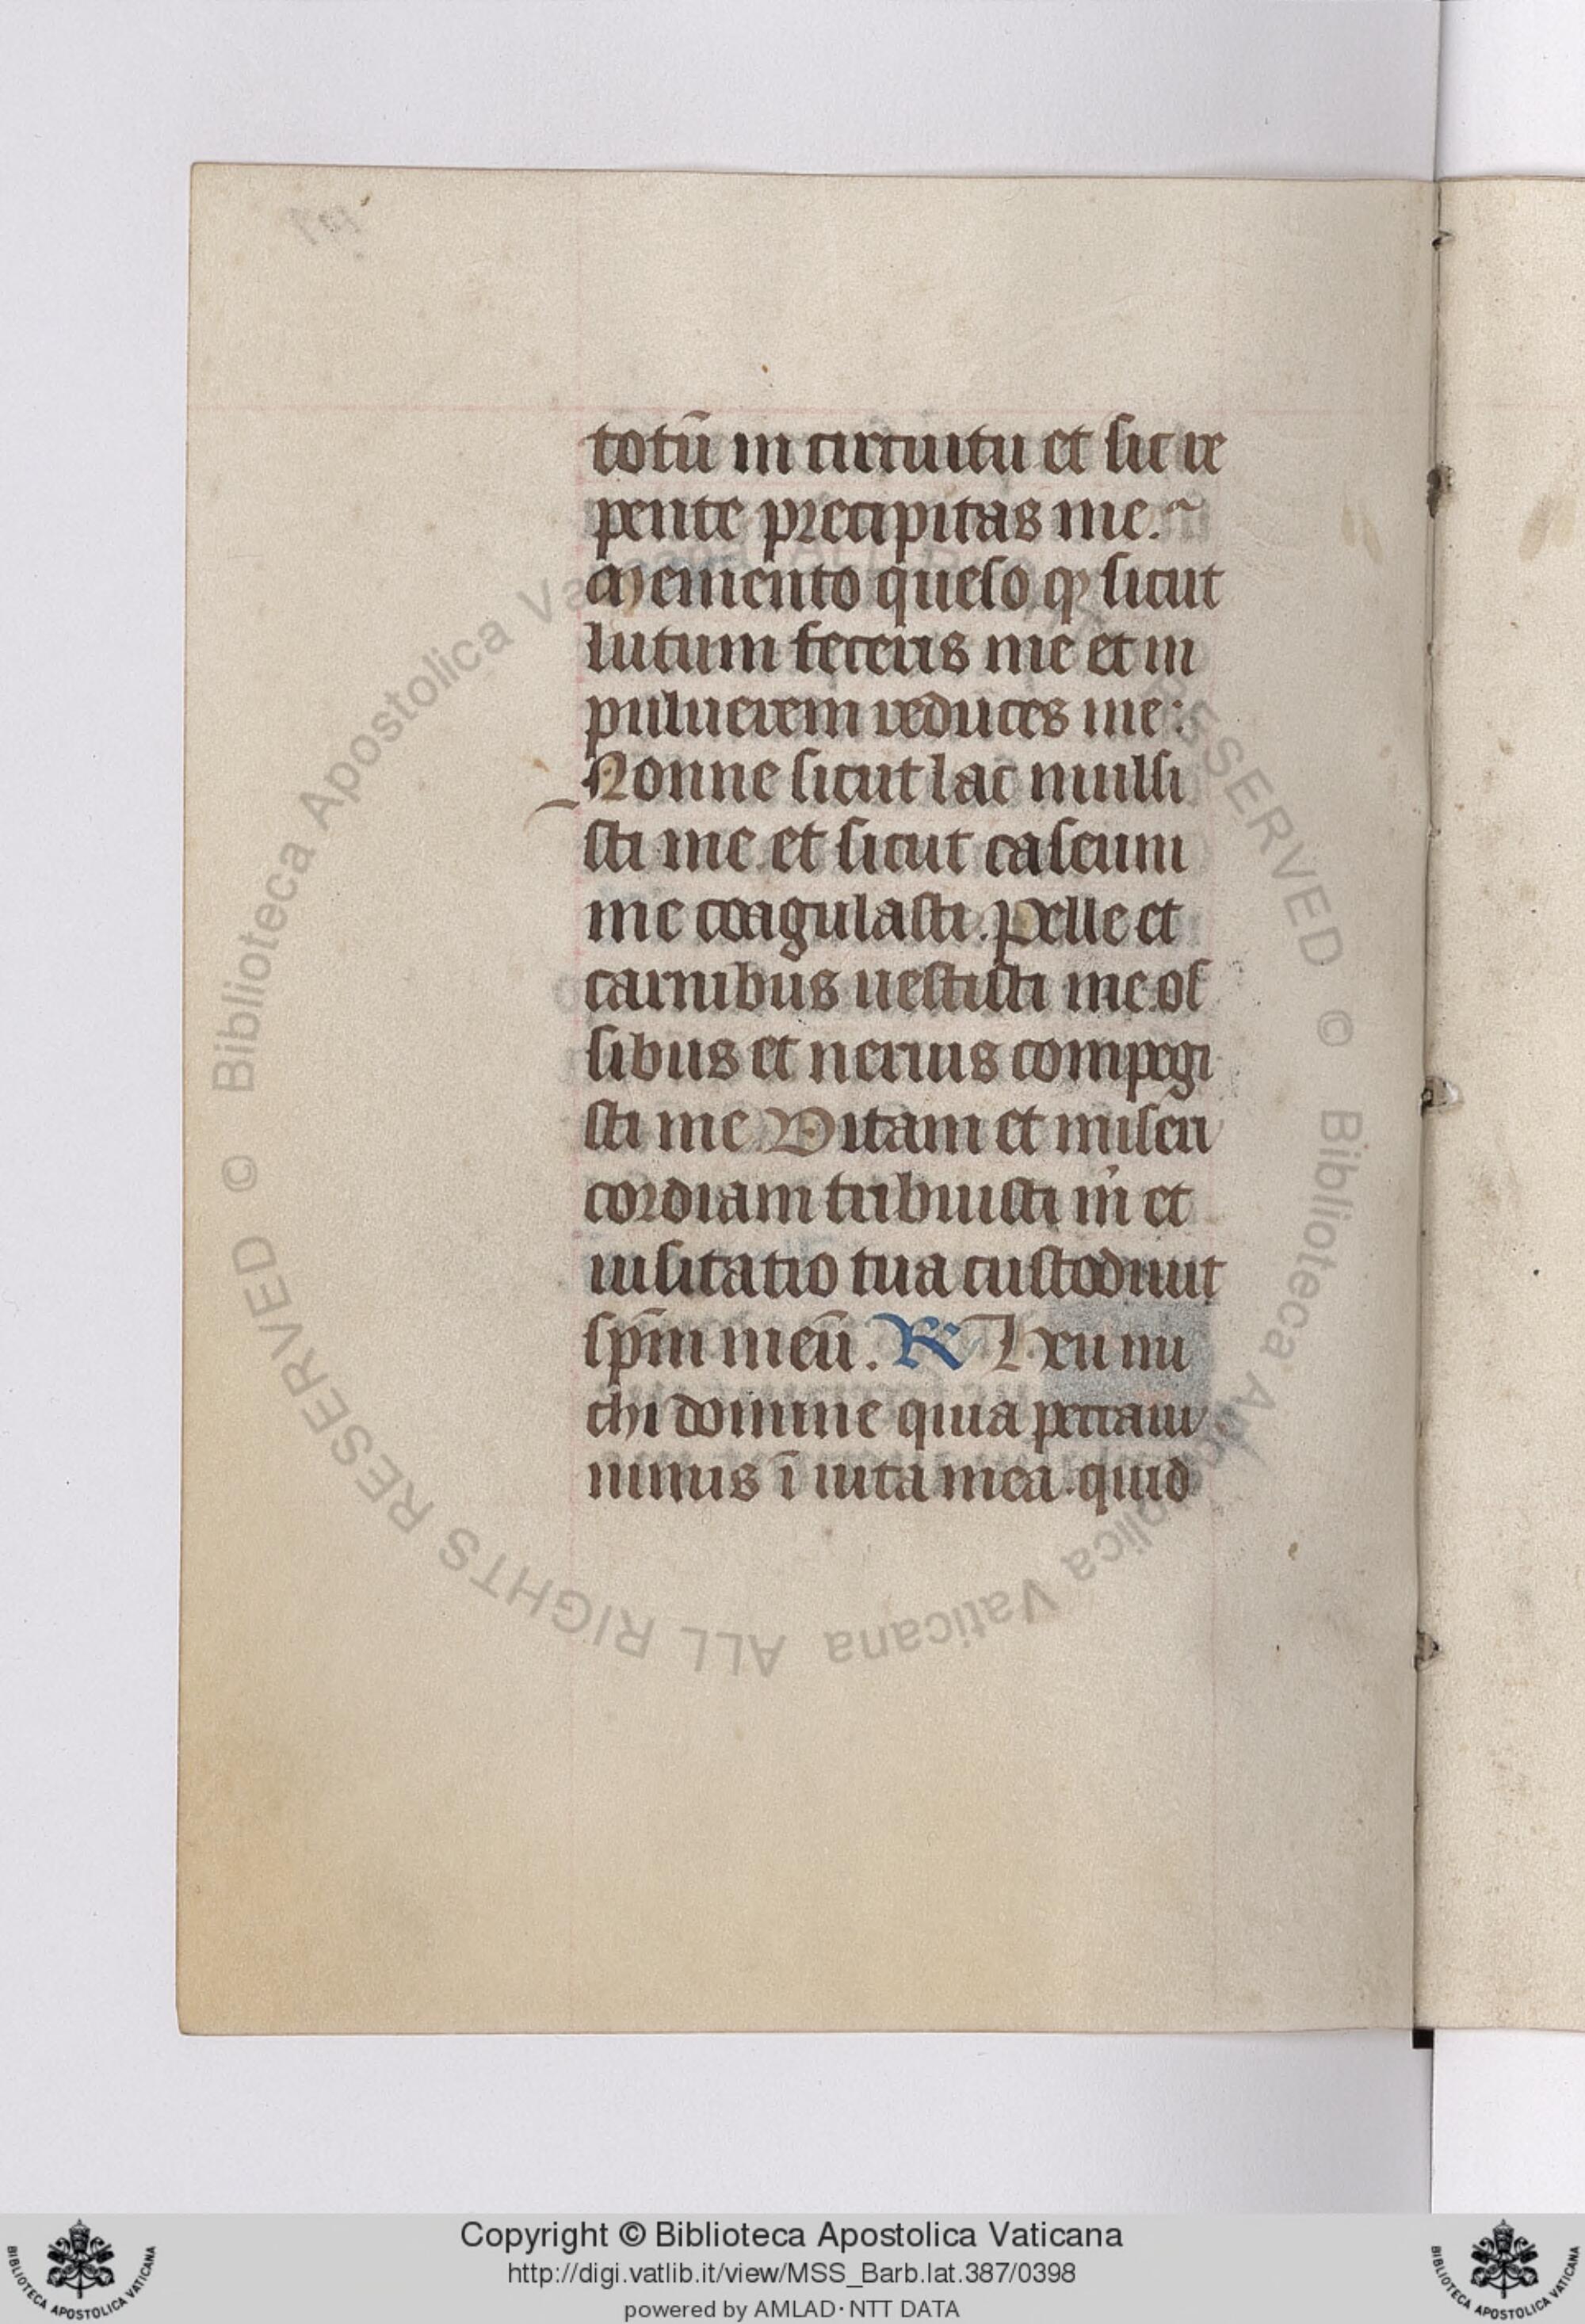 totū in circuitu et sic re
pente precipitas me.
Memento queso qꝫ sicut
lutum feceris me et in
puluerem reduces me:
Nonne sicut lac mulsi
sti me et sicut caseum
me coagulasti. Pelle et
carnibus uestisti me os
sibus et neruis compegi
sti me Vitam et miseri
cordiam tribuisti m̄ et
uisitatio tua custodiuit
sp̄m meū. R̄ Heu mi
chi domine quia peccaui
nimis ī uita mea. quid
© Biblioteca Apostolica Vaticana ALL RIGHTS RESERVED © Biblioteca Apostolica Vaticana ALL RIGHTS RESERVED
Copyright © Biblioteca Apostolica Vaticana
http://digi.vatlib.it/view/MSS_Barb.lat.387/0398
powered by AMLAD·NTT DATA
BIBLIOTECA APOSTOLICA VATICANA
BIBLIOTECA APOSTOLICA VATICANA